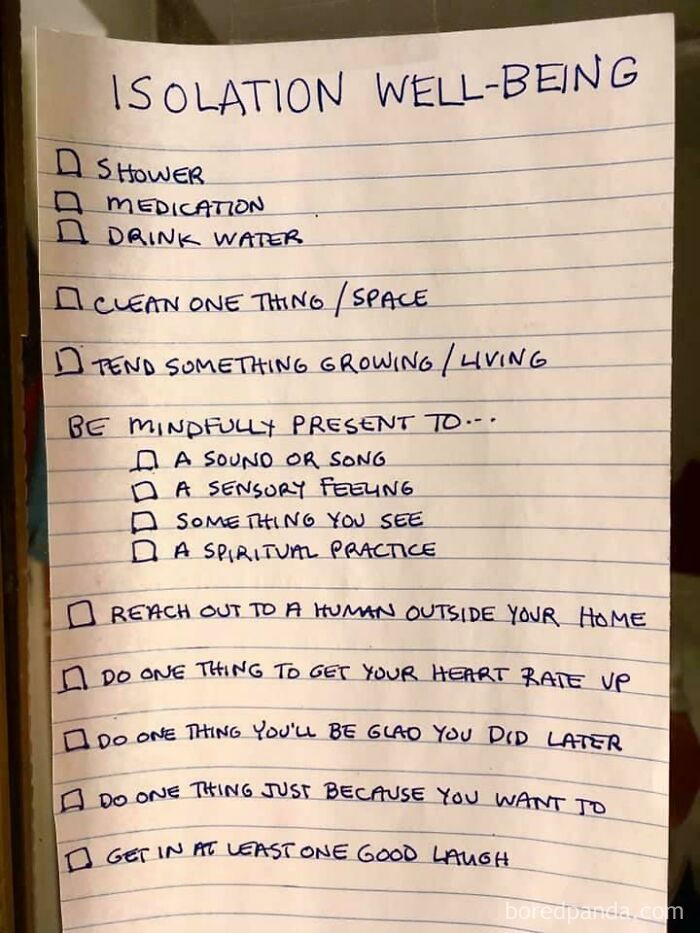 ISOLATION WELL-BEING
SHOWER
MEDICATION
DRINK WATER
CLEAN ONE THING / SPACE
TEND SOMETHING GROWING / LIVING
BE MINDFULLY PRESENT TO...
A SOUND OR SONG
A SENSORY FEELING
SOMETHING YOU SEE
A SPIRITUAL PRACTICE
REACH OUT TO A HUMAN OUTSIDE YOUR HOME
DO ONE THING TO GET YOUR HEART RATE UP
DO ONE THING YOU'LL BE GLAD YOU DID LATER
DO ONE THING JUST BECAUSE YOU WANT TO
GET IN AT LEAST ONE GOOD LAUGH
boredpanda.com